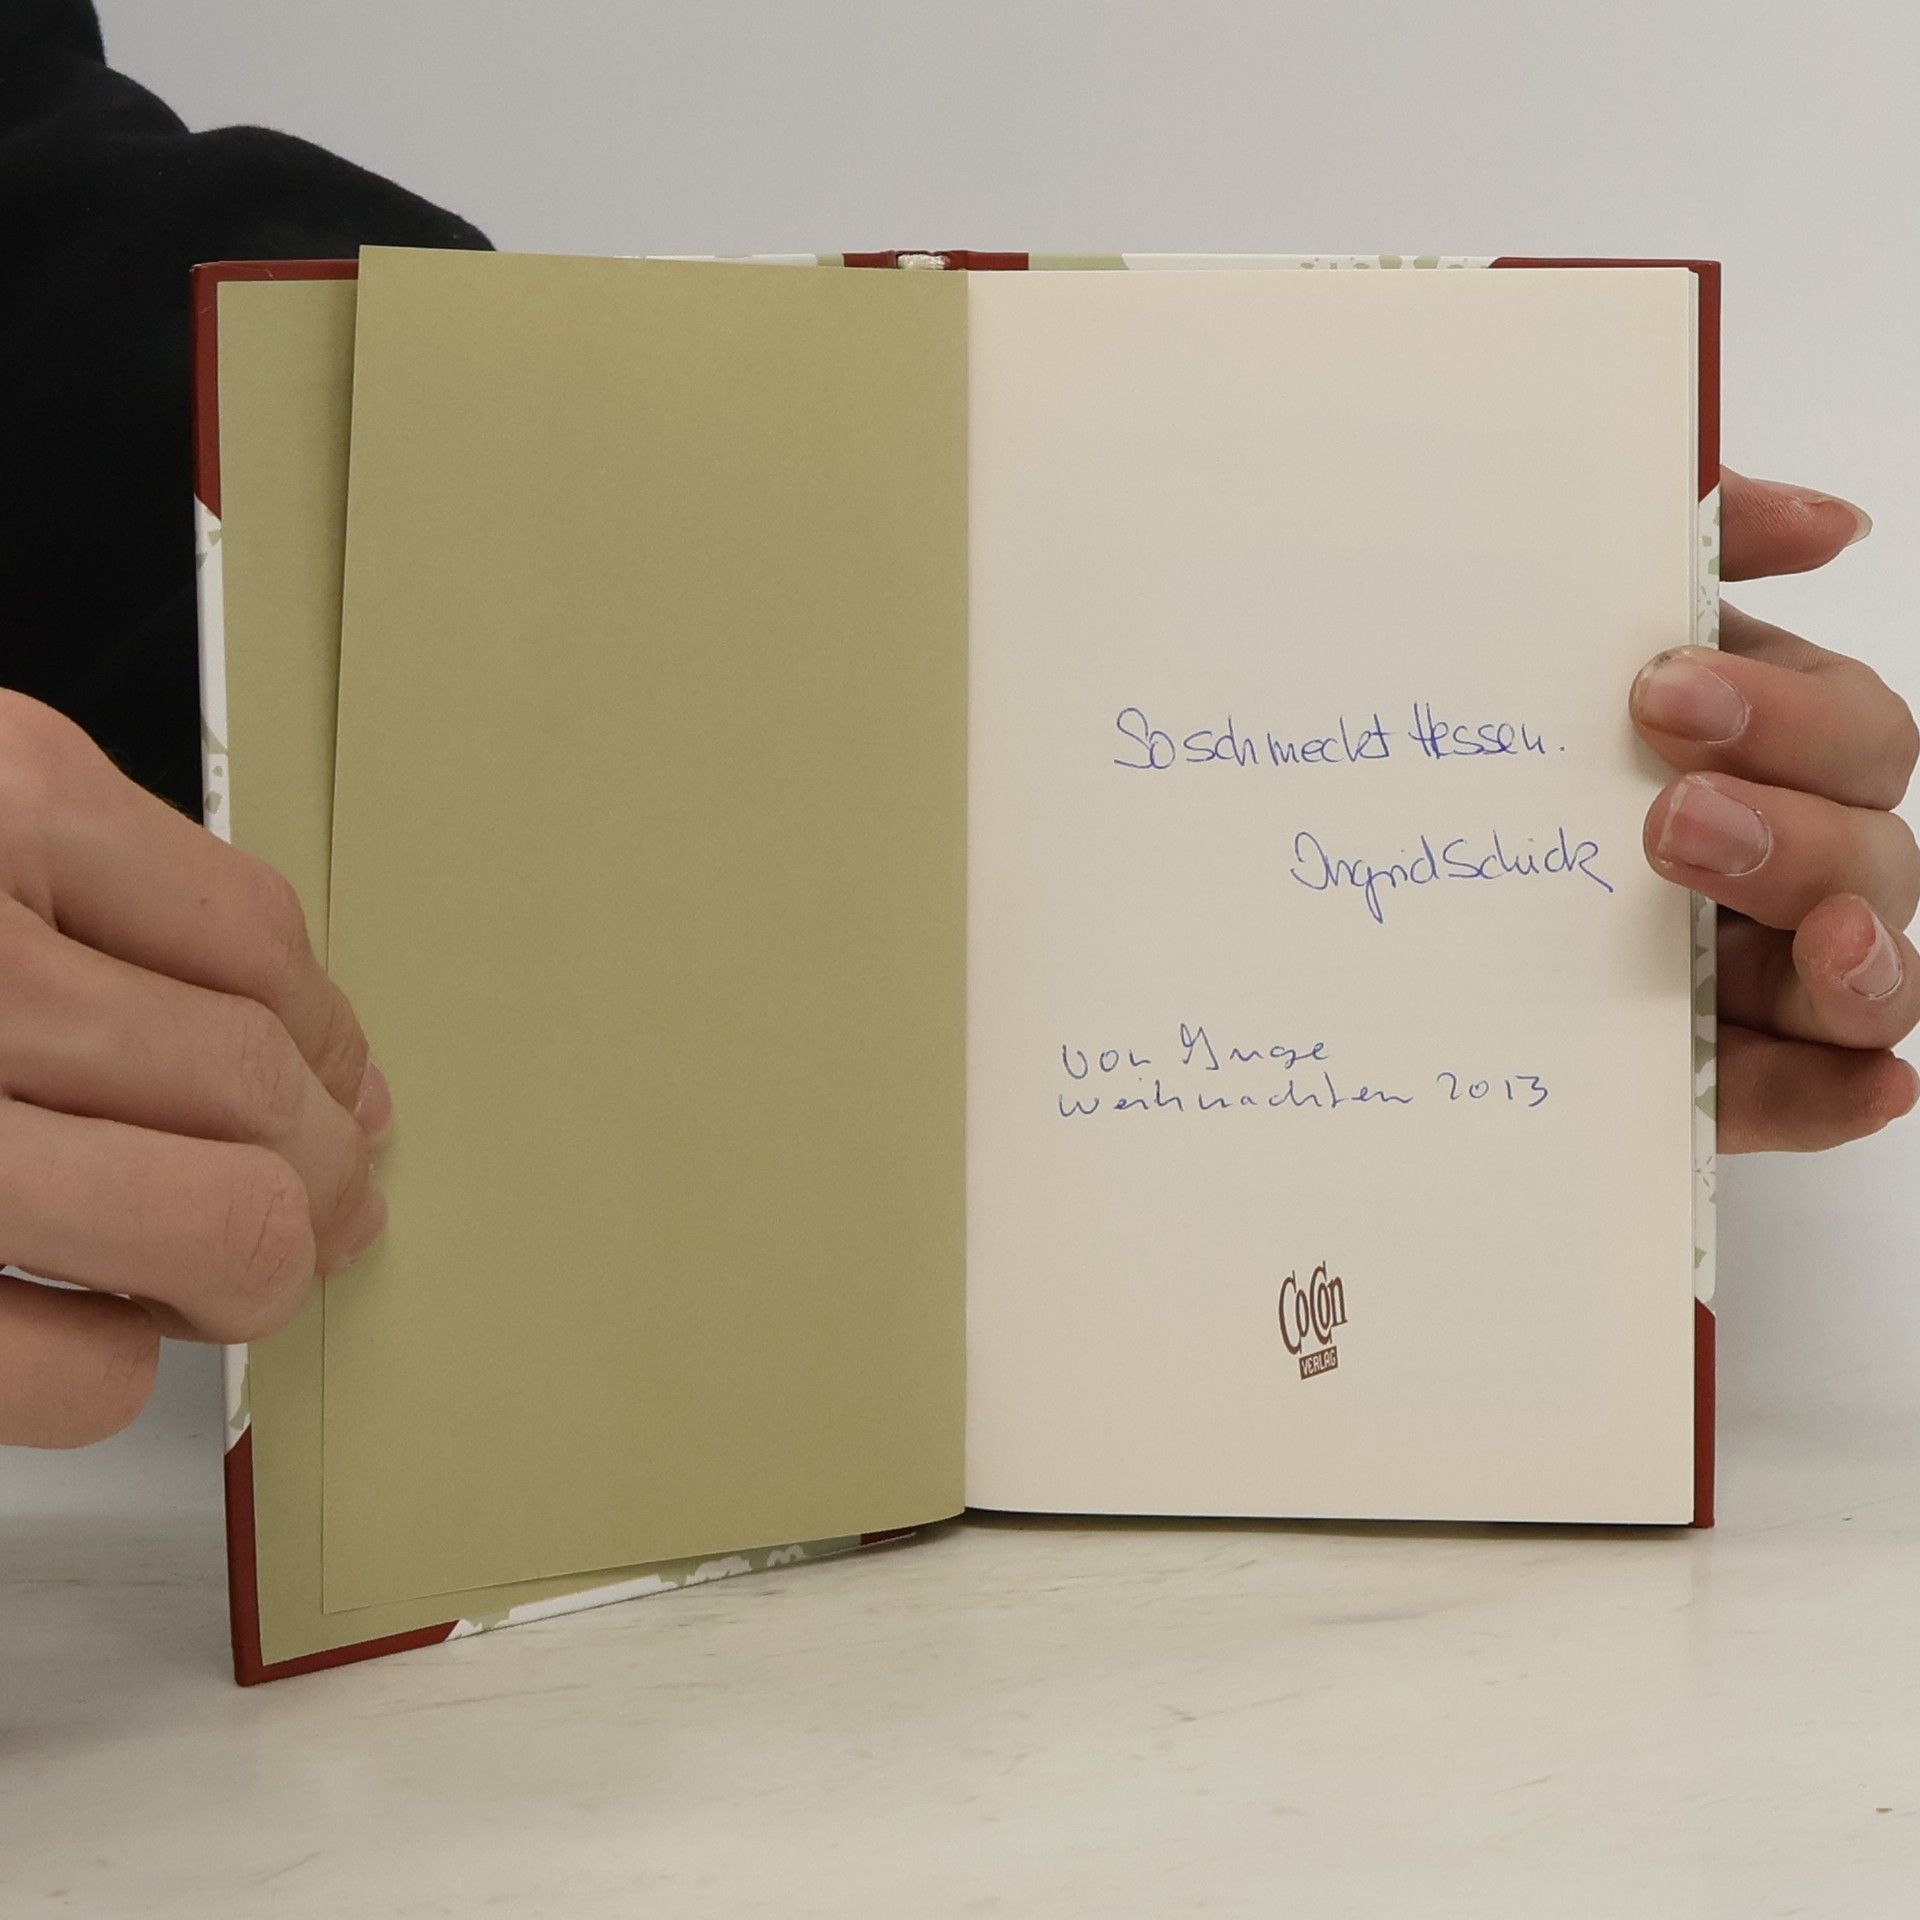 So schmeckt Hessen.
Ingrid Schick
von Inge
Weihnachten 2013
CoCon
VERLAG